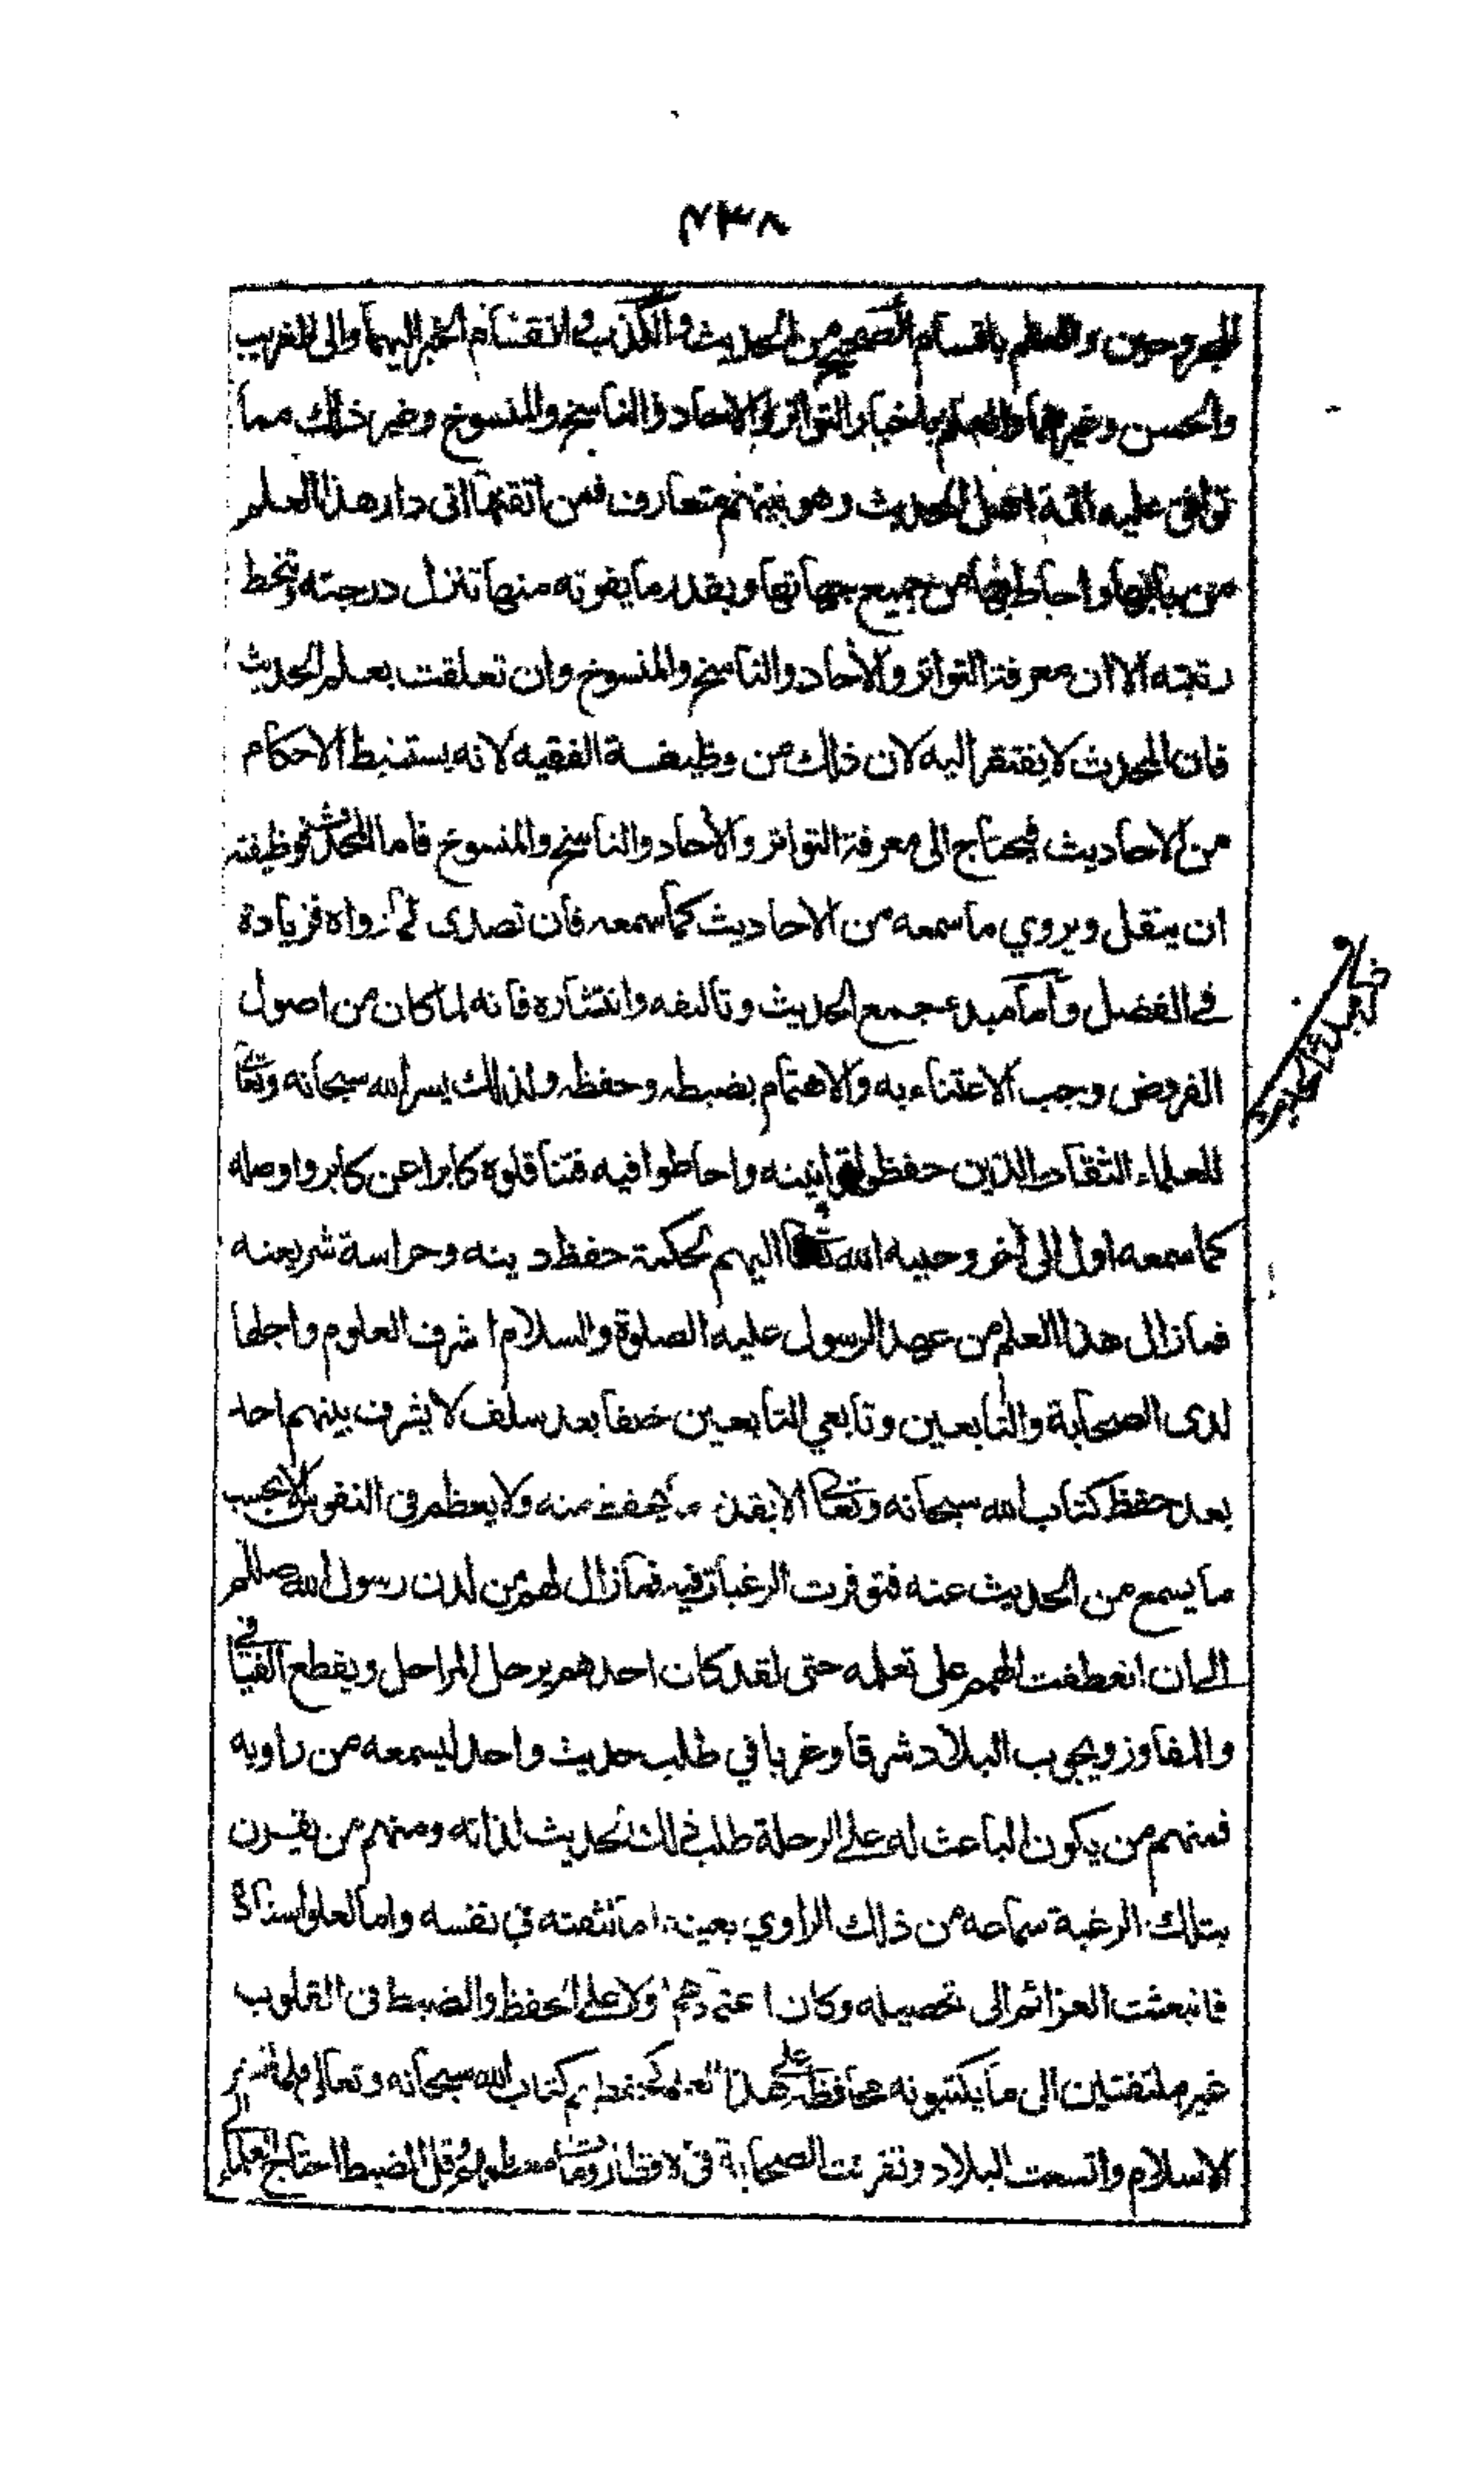 ٢٣٨
المجروحين والعلم باقسام الصحيح من الحديث والكذب وانقسام الخبر اليهما والى الغريب
والحسن وغيرهما والعلم باخبار التواتر والاحاد والناسخ والمنسوخ وغير ذلك مما
توافق عليه ائمة اهل الحديث وهو بينهم متعارف فمن اتقنها اتى دار هذا العلم
من بابها واحاط بها من جميع جهاتها وبقدر ما يفوته منها تنزل درجته وتنحط
رتبته الا ان معرفة التواتر والأحاد والناسخ والمنسوخ وان تعلقت بعلم الحديث
فان المحدث لا يفتقر اليه لان ذلك من وظيفة الفقيه لانه يستنبط الاحكام
من الاحاديث فيحتاج الى معرفة التواتر والأحاد والناسخ والمنسوخ فاما المحدث فوظيفته
ان ينقل ويروي ما سمعه من الاحاديث كما سمعه فان تصدى لما رواه فزيادة
في الفضل وأما مبدء جمع الحديث وتاليفه وانتشاره فانه لما كان من اصول
الفروض وجب الاعتناء به والاهتمام بضبطه وحفظه ولذلك يسر الله سبحانه وتعا
للعلماء الثقات الذين حفظوا قوانينه واحاطوا فيه فتناقلوه كابرا عن كابر واوصله
كما سمعه اول الى أخر وحببه الله تعا اليهم لحكمة حفظ دينه وحراسة شريعته
فما زال هذا العلم من عهد الرسول عليه الصلوة والسلام اشرف العلوم واجلها
لدى الصحابة والتابعين وتابعي التابعين خلفا بعد سلف لا يشرف بينهم احد
بعد حفظ كتاب الله سبحانه وتعا الا بقدر ما يحفظ منه ولا يعظم في النفوس الا بحسب
ما يسمع من الحديث عنه فتوفرت الرغبات فيه فما زال لهم من لدن رسول الله صللم
الى ان انعطفت الهمم على تعلمه حتى لقد كان احدهم يرحل المراحل ويقطع الفيافي
والمفاوز ويجوب البلاد شرقا وغربا في طلب حديث واحد ليسمعه من راويه
فمنهم من يكون الباعث له على الرحلة طلب ذلك الحديث لذاته ومنهم من يقرن
بتلك الرغبة سماعه من ذلك الراوي بعينه اما لثقته في نفسه واما لعلو اسناده
فانبعثت العزائم الى تحصيله وكان اعتمادهم اولا على الحفظ والضبط في القلوب
غير ملتفتين الى ما يكتبونه محافظة على هذا العلم كحفظهم كتاب الله سبحانه وتعالى فلما انتشر
الاسلام واتسعت البلاد وتفرقت الصحابة في الاقطار ومات معظمهم وقل الضبط احتاج العلماء الى